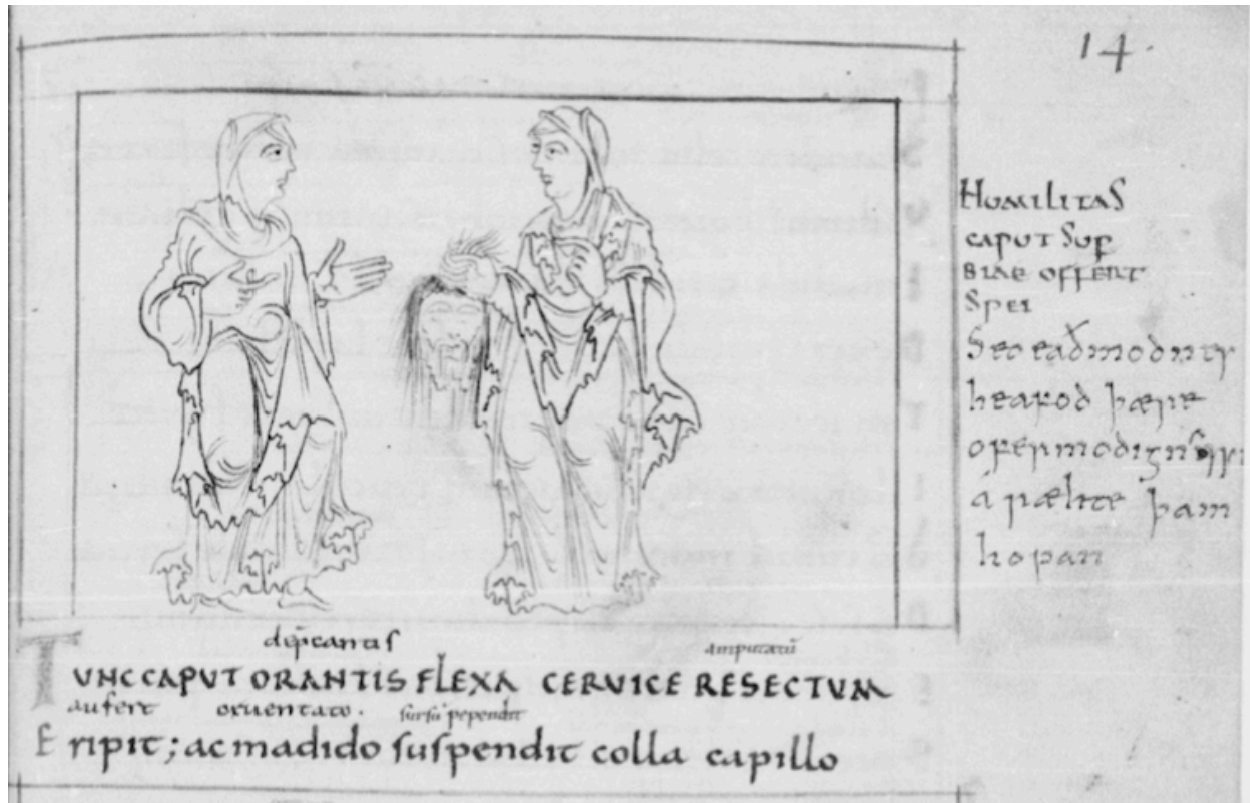 14.
HUMILITAS
CAPUT SUP
BIAE OFFERT
SPEI
Seo eadmodnys
heafod þære
þam
hopan
dep̄cantis amputatū
TUNC CAPUT ORANTIS FLEXA CERUICE RESECTUM
aufert cruentato. sursū pependit
Eripit; ac madido suspendit colla capillo